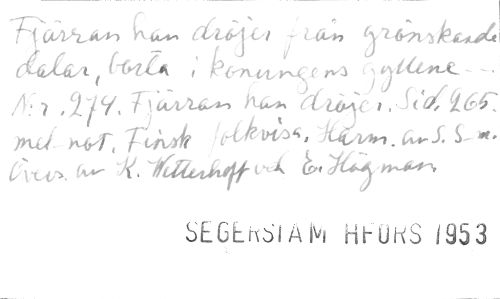 Fjärran han dröjer från grönskande
dalar, borta i konungens gyllene - -
N:r. 274. Fjärran han dröjer. Sid. 265.
mel-not. Finsk folkvisa. Harm. av S. S-m.
Övers. av K. Wetterhoff och E. Hagman.
SEGERSTAM HFORS 1953